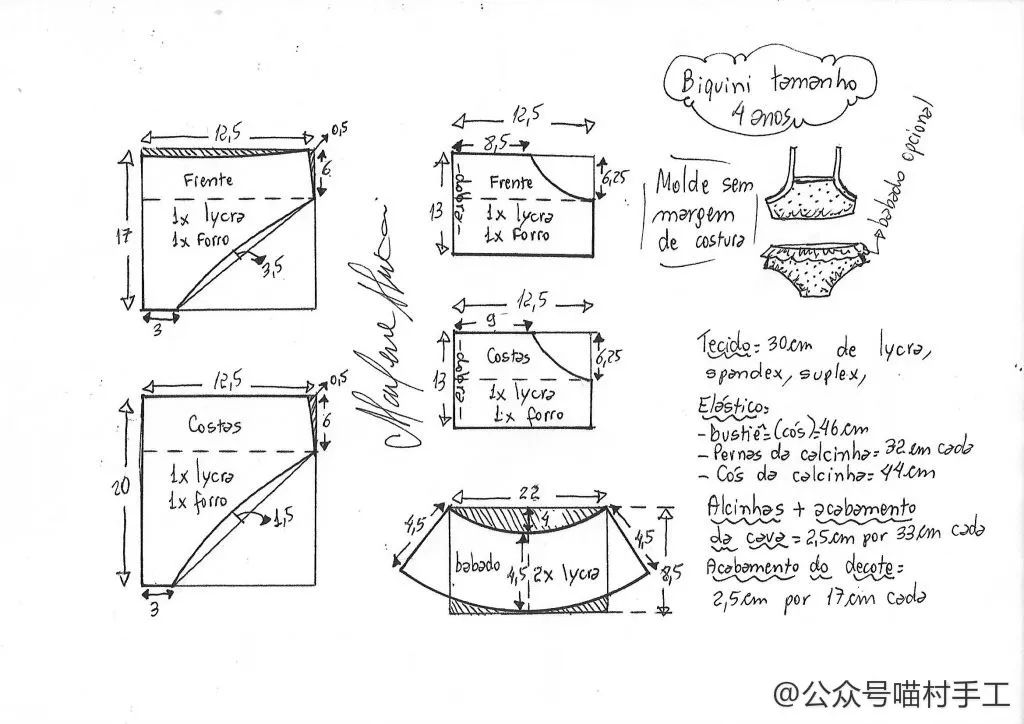 Biquini tamanho
4 anos
babado opcional
Molde sem
margem
de costura
12,5
0,5
6
Frente
1x lycra
1x forro
17
3,5
3
12,5
8,5
6,25
dobra
Frente
13
1x lycra
1x forro
12,5
9
6,25
dobra
Costas
13
1x lycra
1x forro
12,5
0,5
6
Costas
1x lycra
1x forro
20
1,5
3
22
4,5
4
4,5
babado
4,5
2x lycra
8,5
Tecido = 30cm de lycra,
spandex, suplex,
Elástico:
- bustiê = (cós) = 46cm
- Pernas da calcinha = 32cm cada
- Cós da calcinha = 44cm
Alcinhas + acabamento
da cava = 2,5cm por 33cm cada
Acabamento do decote =
2,5cm por 17cm cada
@公众号喵村手工